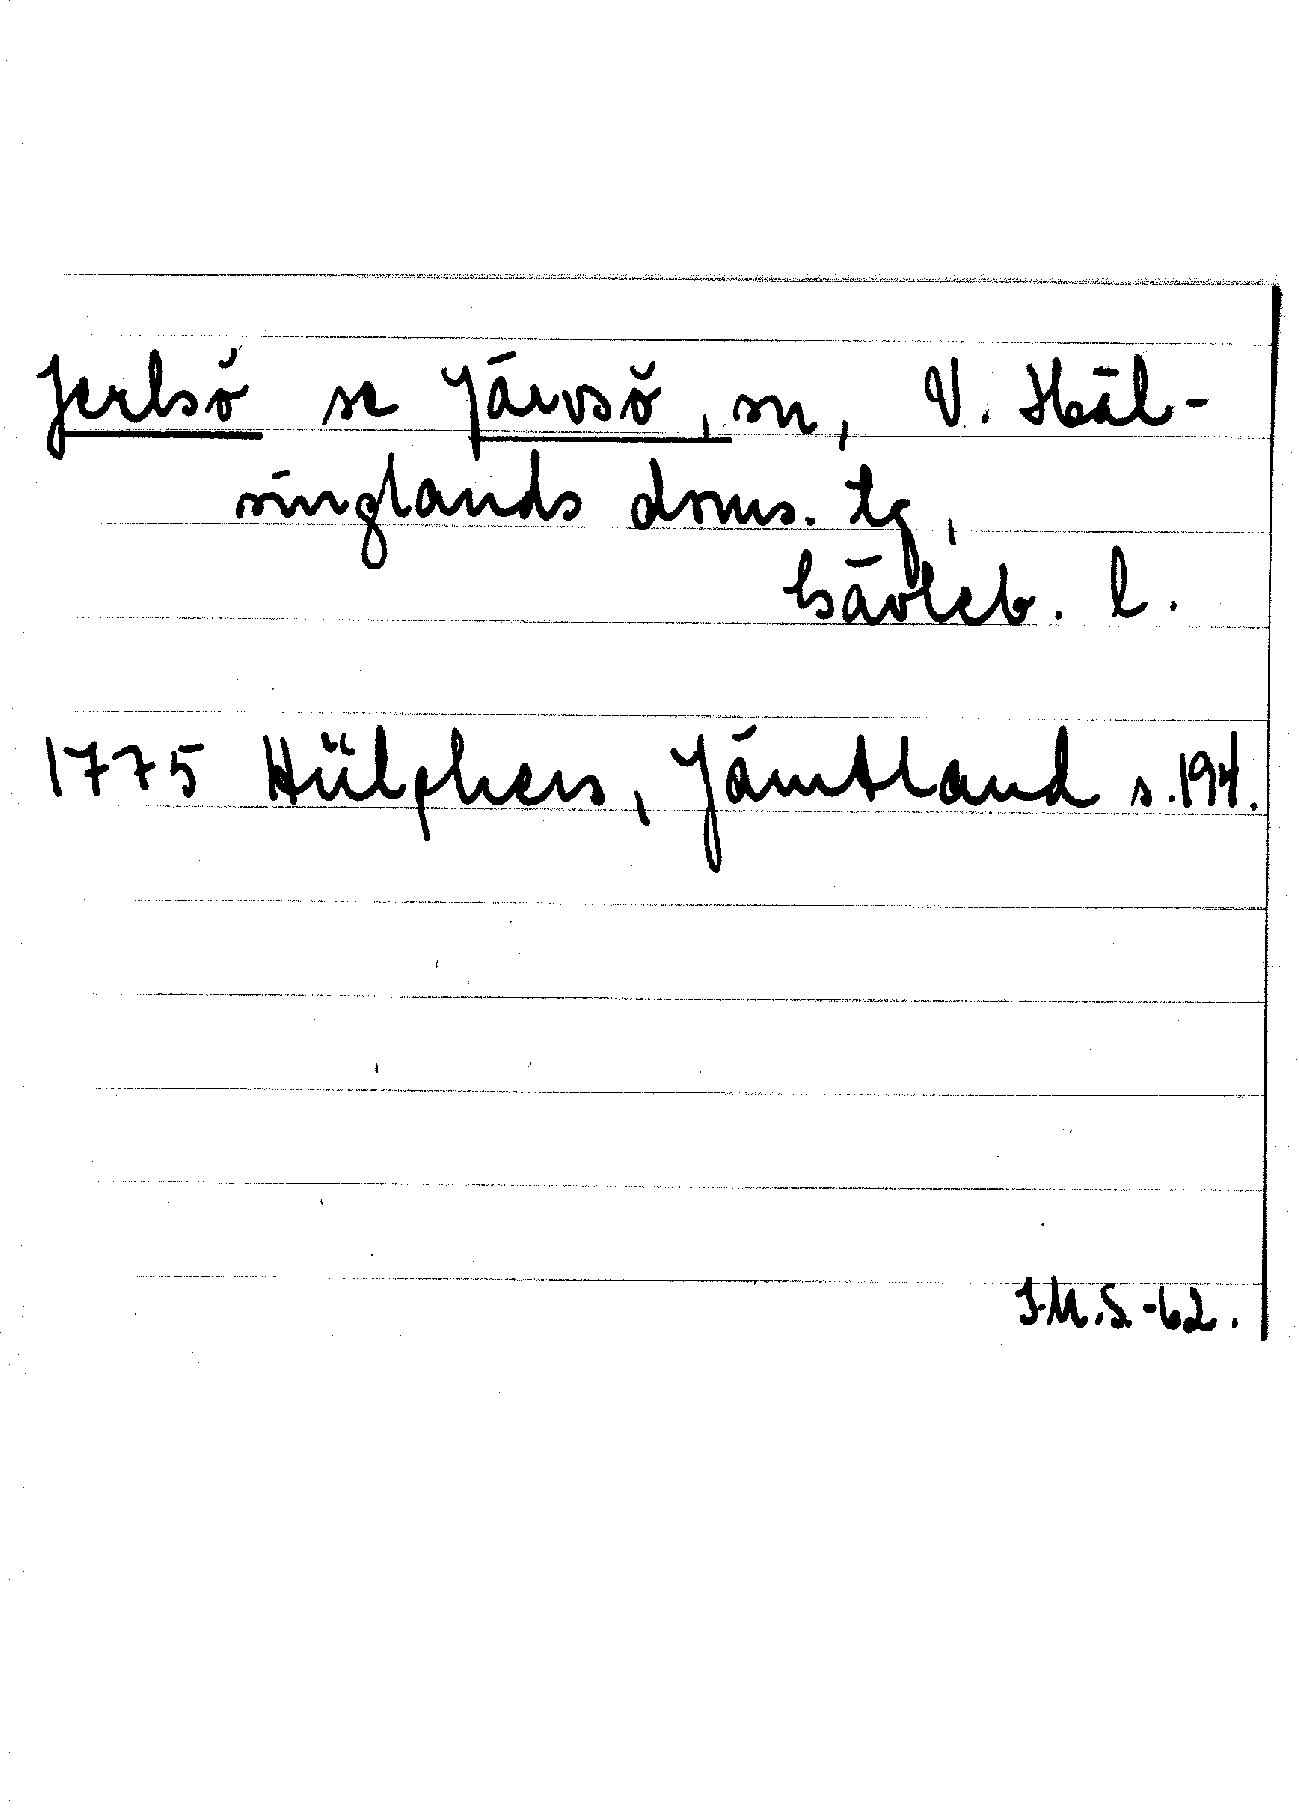 Jerlsö se Järvsö, sn, V. Häl-
singlands doms. tg,
Gävleb. l.
1775 Hülphers, Jämtland s. 194.
I-M.S.-62.